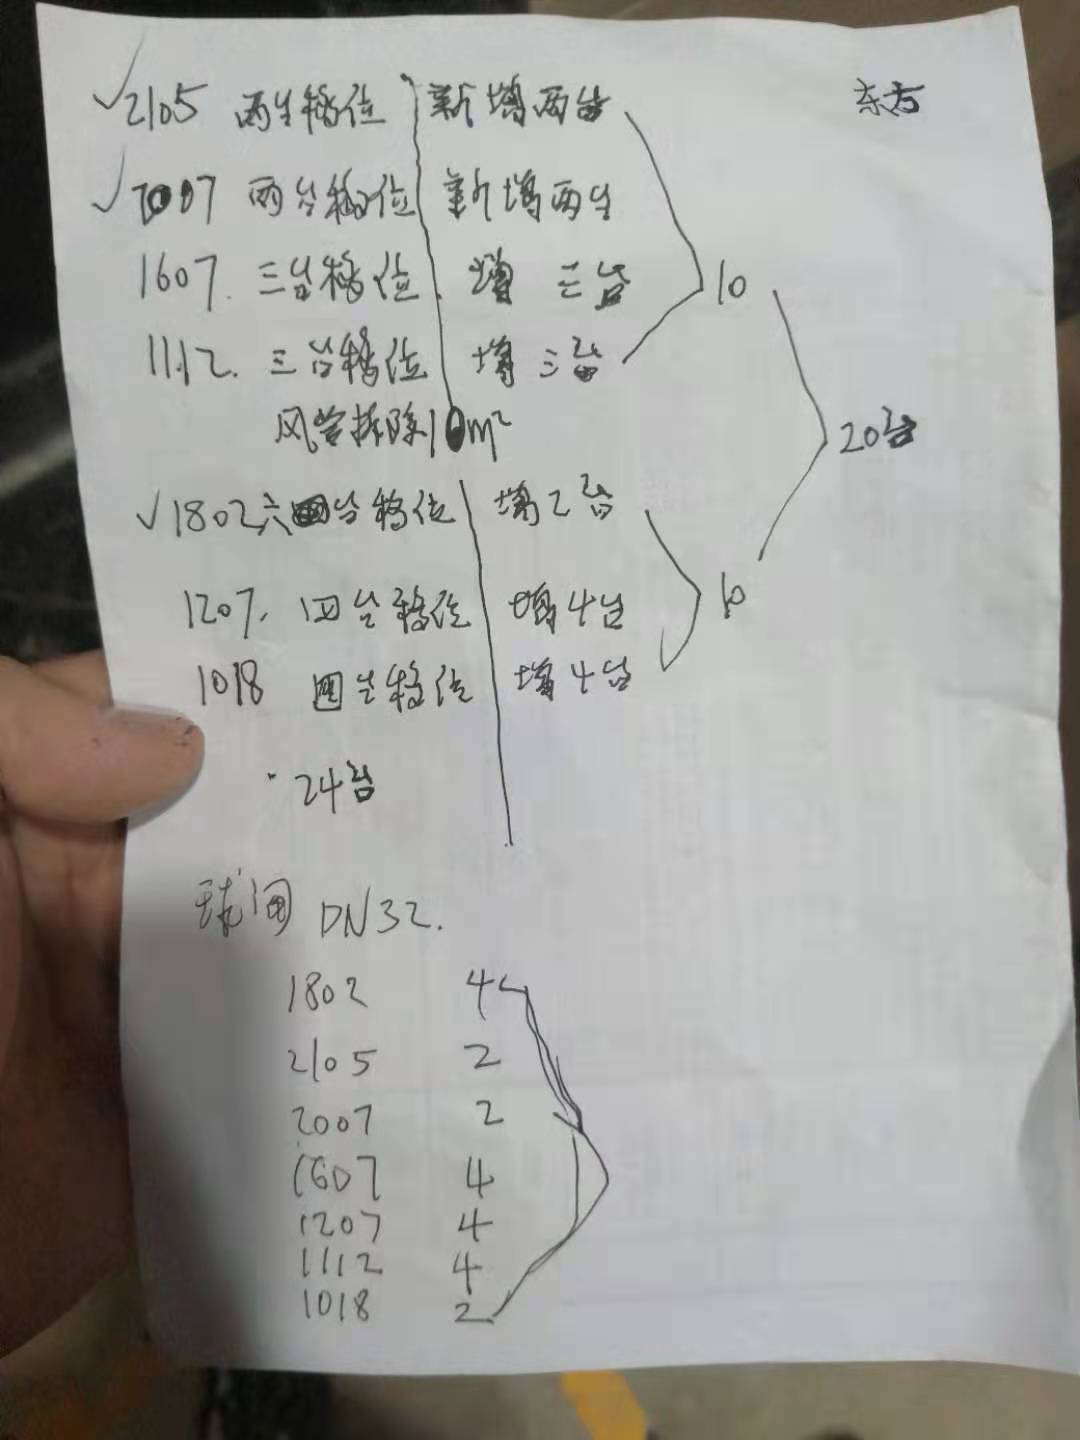 东方
✓2105 两台移位 新增两台
✓2007 两台移位 新增两台
1607. 三台移位. 增 三台
10
1112. 三台移位 增 三台
风管拆除10m²
20台
✓1802 六台移位 增2台
1207. 四台移位 增4台
10
1018 四台移位 增4台
24台
球阀 DN32.
1802 4
2105 2
2007 2
1607 4
1207 4
1112 4
1018 2